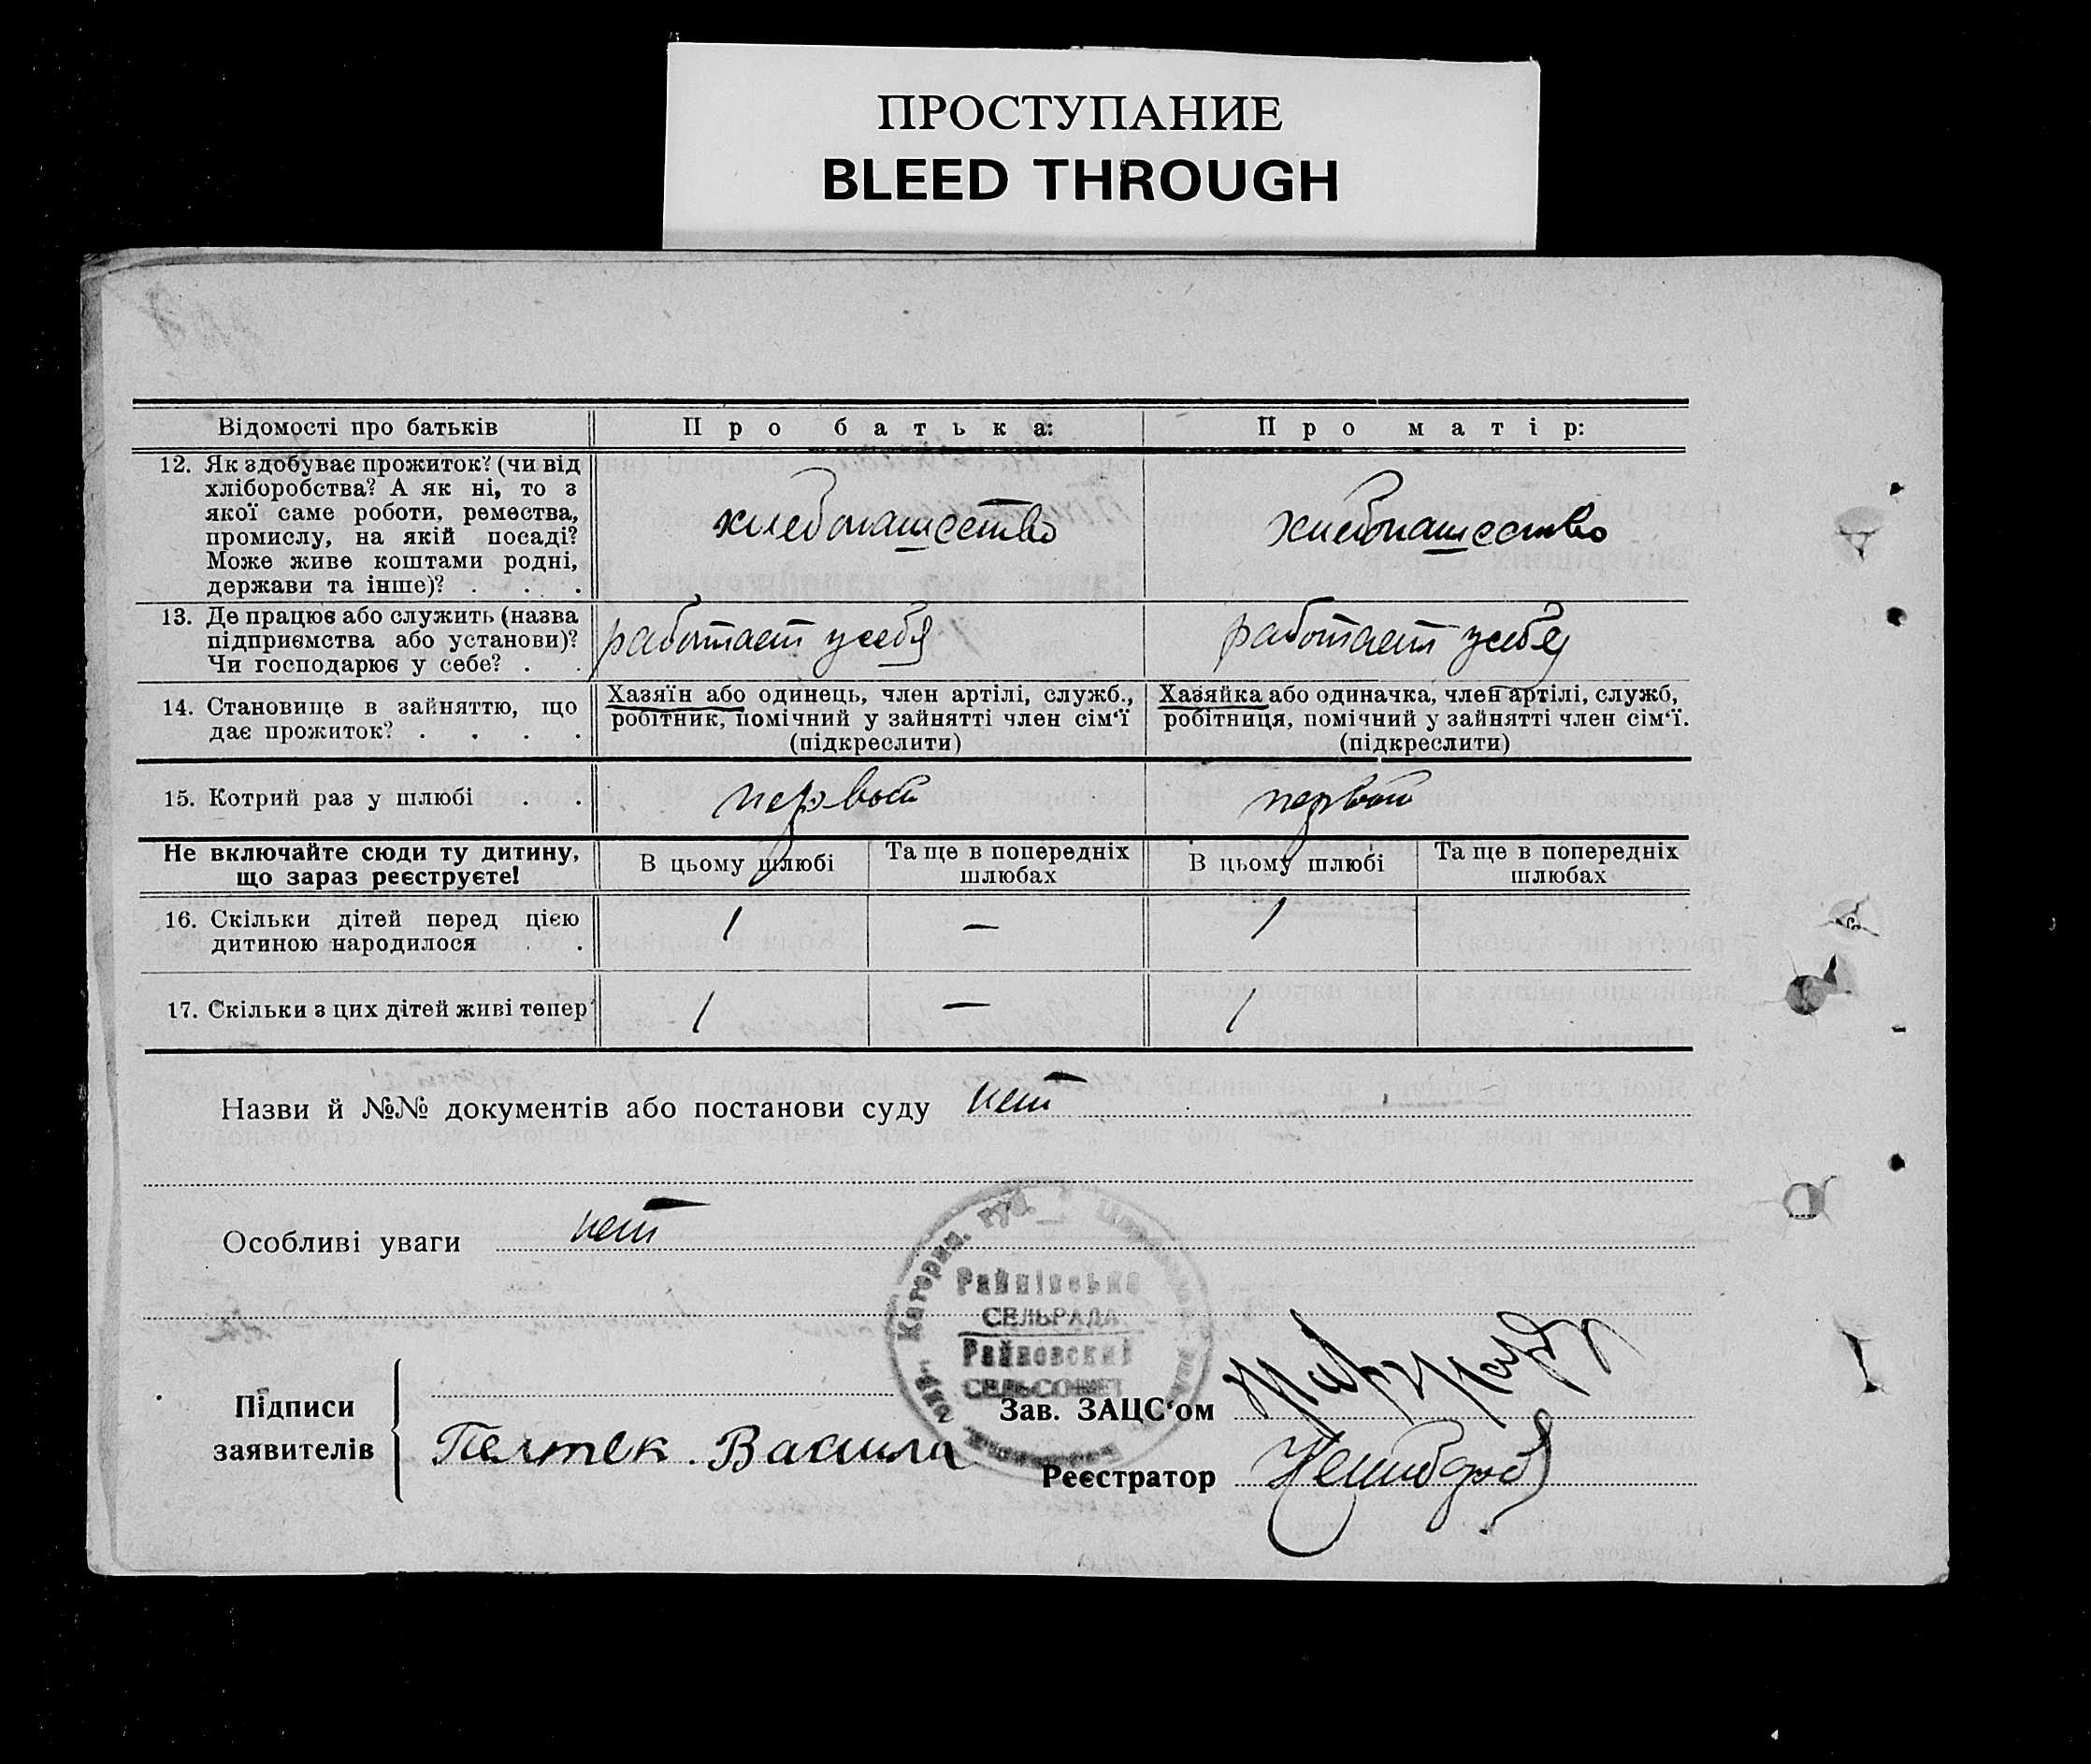 ПРОСТУПАНИЕ
BLEED THROUGH
Відомості про батьків
Про батька:
Про матір:
12. Як здобуває прожиток? (чи від
хліборобства? А як ні, то з
якої саме роботи, ремества,
промислу, на якій посаді?
Може живе коштами родні,
держави та інше)? . . .
хлебопашество
хлебопашество
13. Де працює або служить (назва
підприємства або установи)?
Чи господарює у себе? . .
работает у себя
работает у себя
14. Становище в зайняттю, що
дає прожиток? . . . .
Хазяїн або одинець, член артілі, служб.,
робітник, помічний у зайнятті член сім‘ї
(підкреслити)
Хазяйка або одиначка, член артілі, служб,
робітниця, помічний у зайнятті член сім‘ї.
(підкреслити)
15. Котрий раз у шлюбі . .
первый
первый
Не включайте сюди ту дитину,
що зараз реєструєте!
В цьому шлюбі
Та ще в попередніх
шлюбах
В цьому шлюбі
Та ще в попередніх
шлюбах
16. Скільки дітей перед цією
дитиною народилося . .
1
—
1
17. Скільки з цих дітей живі тепер
1
—
1
Назви й №№ документів або постанови суду нет
Особливі уваги нет
Катерин. губ.
Райнівська
СЕЛЬРАДА
Райновский
СЕЛЬСОВЕТ
Підписи
заявителів
Пелтек Васили
Зав. ЗАЦС‘ом
Реєстратор